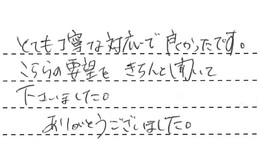 とても丁寧な対応で良かったです。
こちらの要望をきちんと聞いて
下さいました。
ありがとうございました。